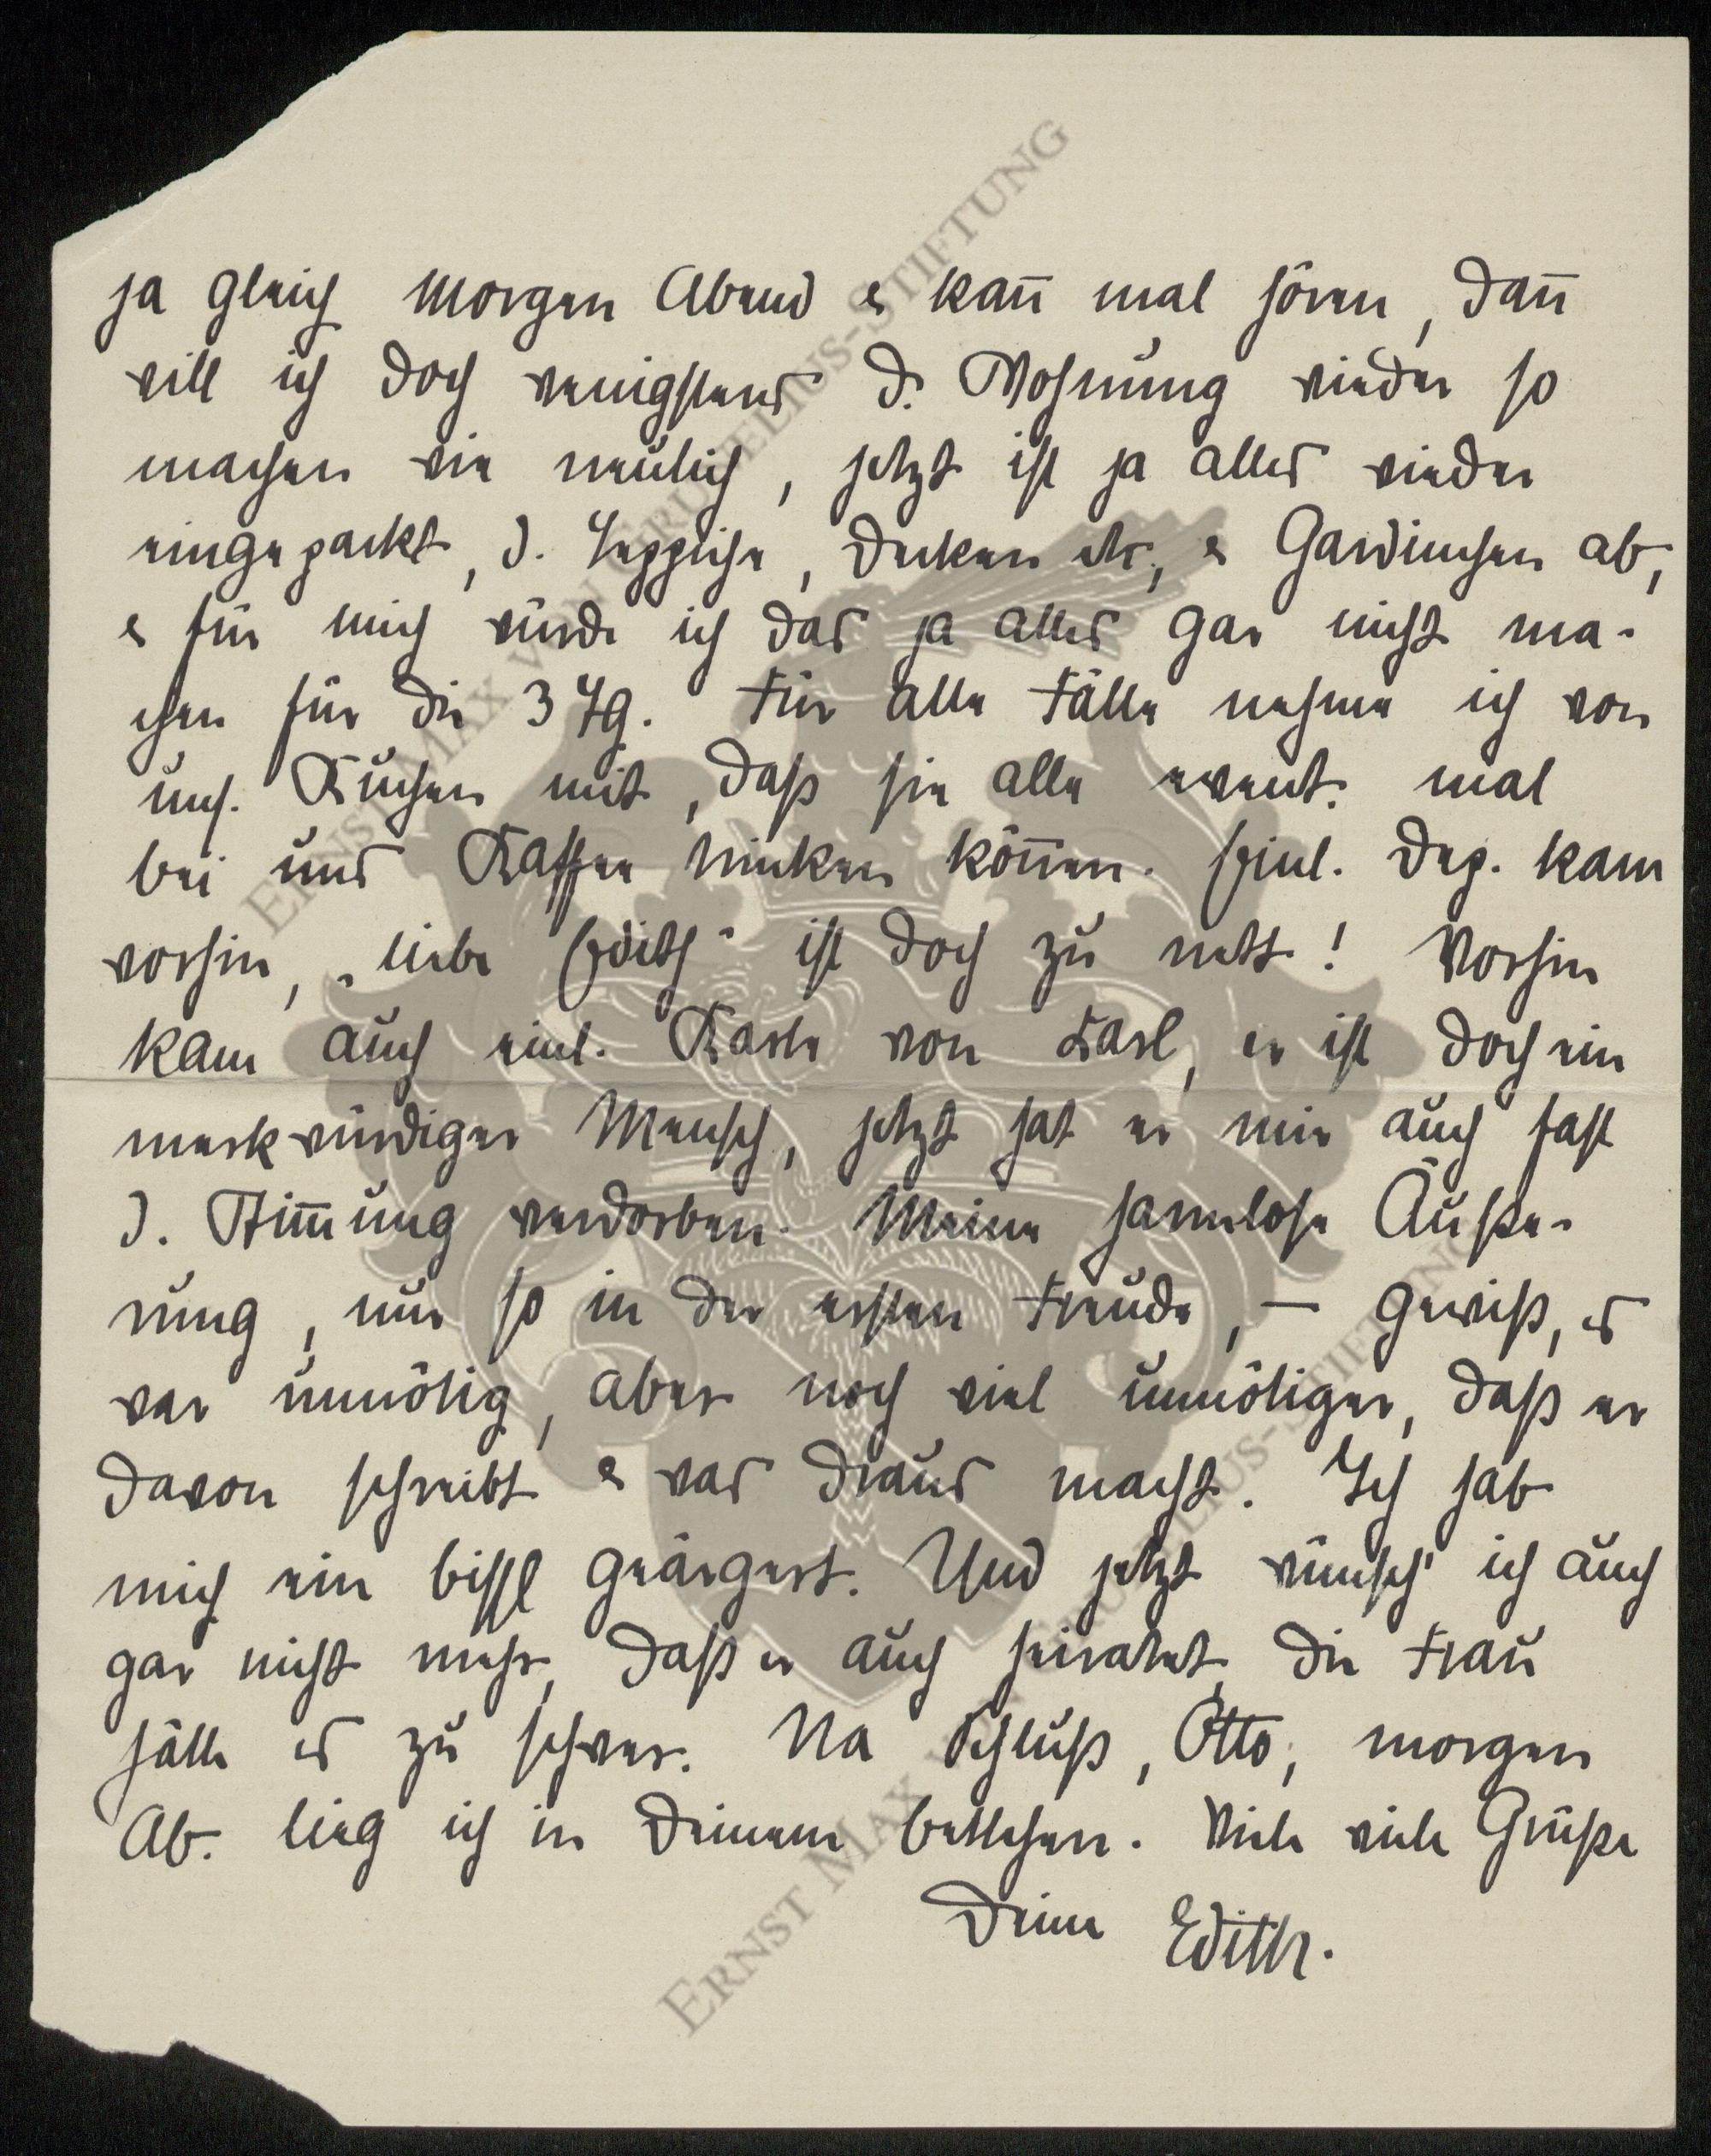 ja gleich morgen Abend & kan̄ mal hören, dan̄
will ich doch wenigstens d. Wohnung wieder so
machen wie neulich, jetzt ist ja alles wieder
eingepackt, d. Teppiche, Decken etc, & Gardinchen ab,
& für mich würde ich das ja alles gar nicht ma-
chen für die 3 Tg. Für alle Fälle nehme ich von
uns. Kuchen mit, daß sie alle event. mal
bei uns Kaffee trinken kön̄en. Heut. Dep. kam
vorhin, „liebe Edith" ist doch zu nett! Vorhin
kam auch eine Karte von Karl, er ist doch ein
merkwürdiger Mensch, jetzt hat er mir auch fast
d. Stim̄ung verdorben. Meine harmlose Äuße-
rung, nur so in der ersten Freude, — gewiß, es
war unnötig, aber noch viel unnötiger, daß er
davon schreibt & was draus macht. Ich hab
mich ein bissl geärgert. Und jetzt wünsch' ich auch
gar nicht mehr, daß er auch heiratet, die Frau
hätte es zu schwer. Na Schluß, Otto, morgen
Ab. lieg ich in Deinem Bettchen. Viele viele Grüße
Deine Edith.
ERNST MAX VON GRUNELIUS-STIFTUNG
ERNST MAX VON GRUNELIUS-STIFTUNG